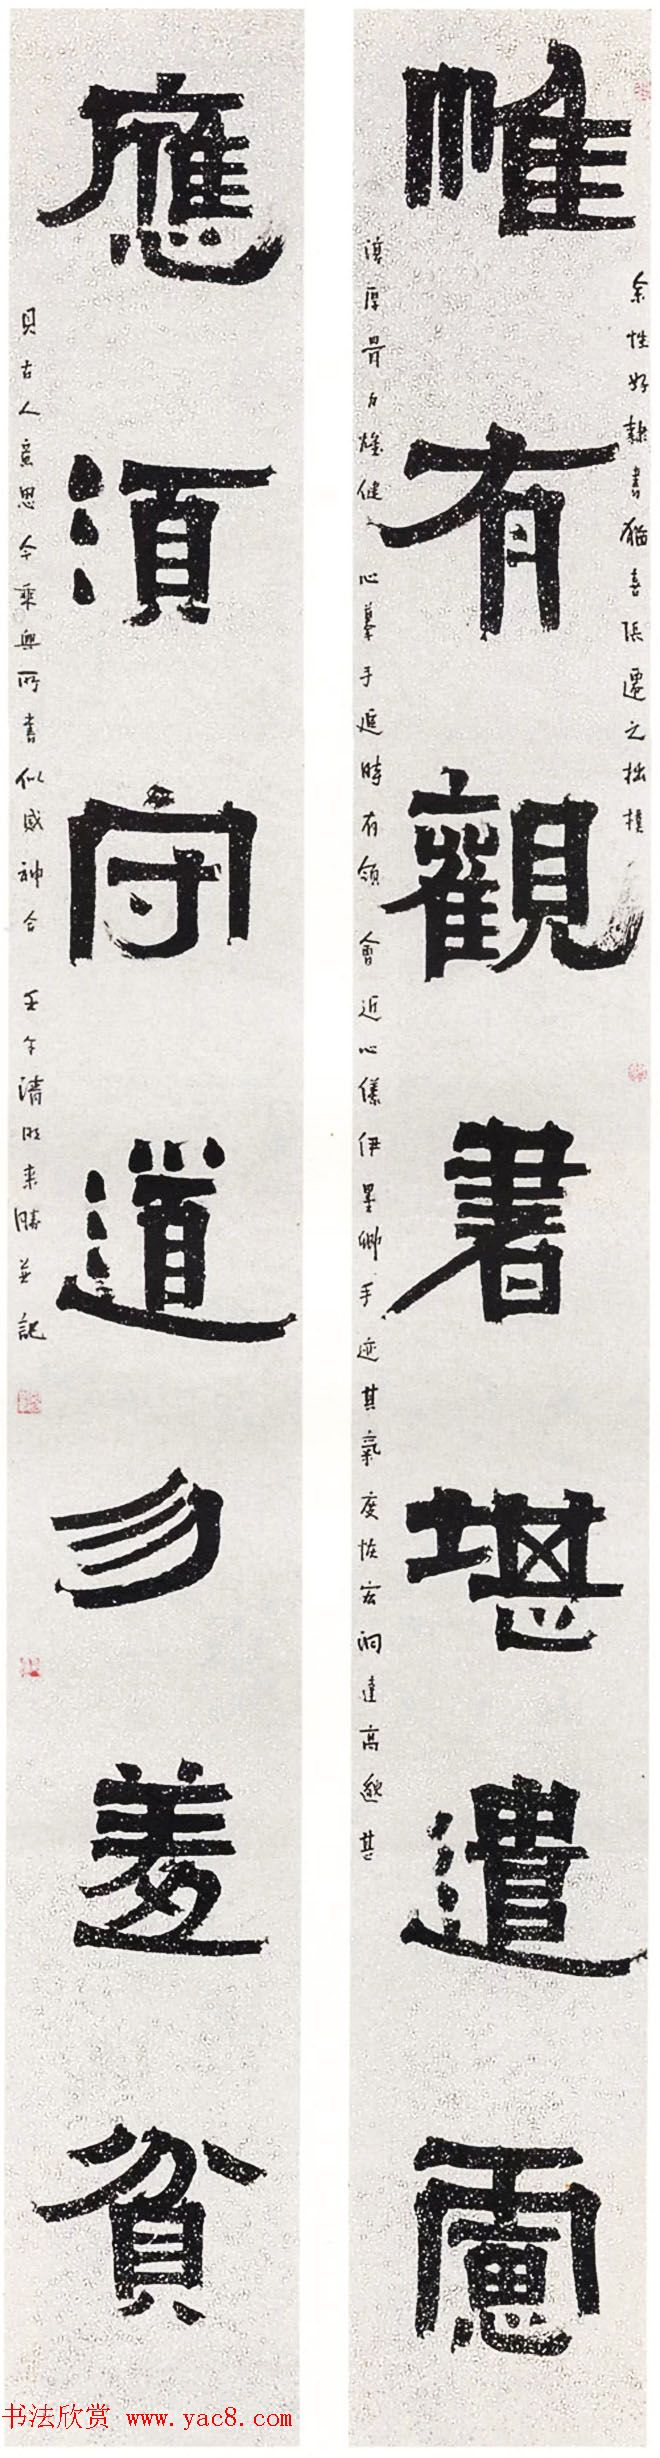 惟有觀書堪遣慮
余性好隸書猶喜張遷之拙樸
淳厚骨力雄健心摹手追時有領會近心儀伊墨卿手迹其氣度恢宏洞達高邈甚
應須守道勿羞貧
具古人意思今乘興所書似感神合 壬午清明来勝并記
书法欣赏 www.yac8.com